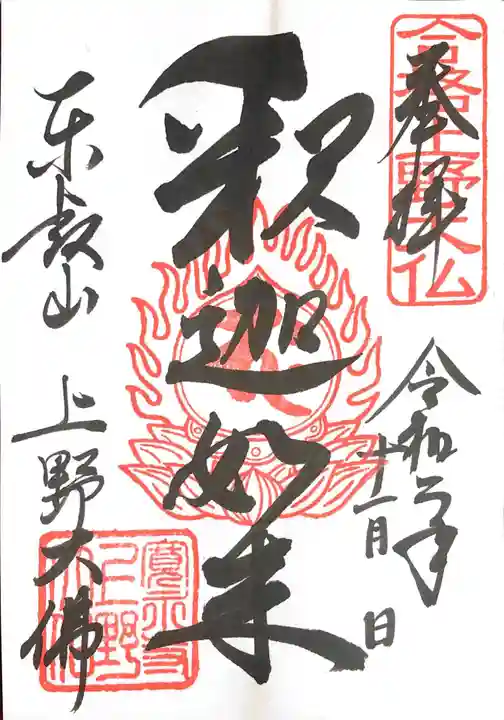 奉拝
合格上野大仏
令和元年
十一月 日
釈迦如来
東叡山 上野大佛
寛永寺
上野
大佛